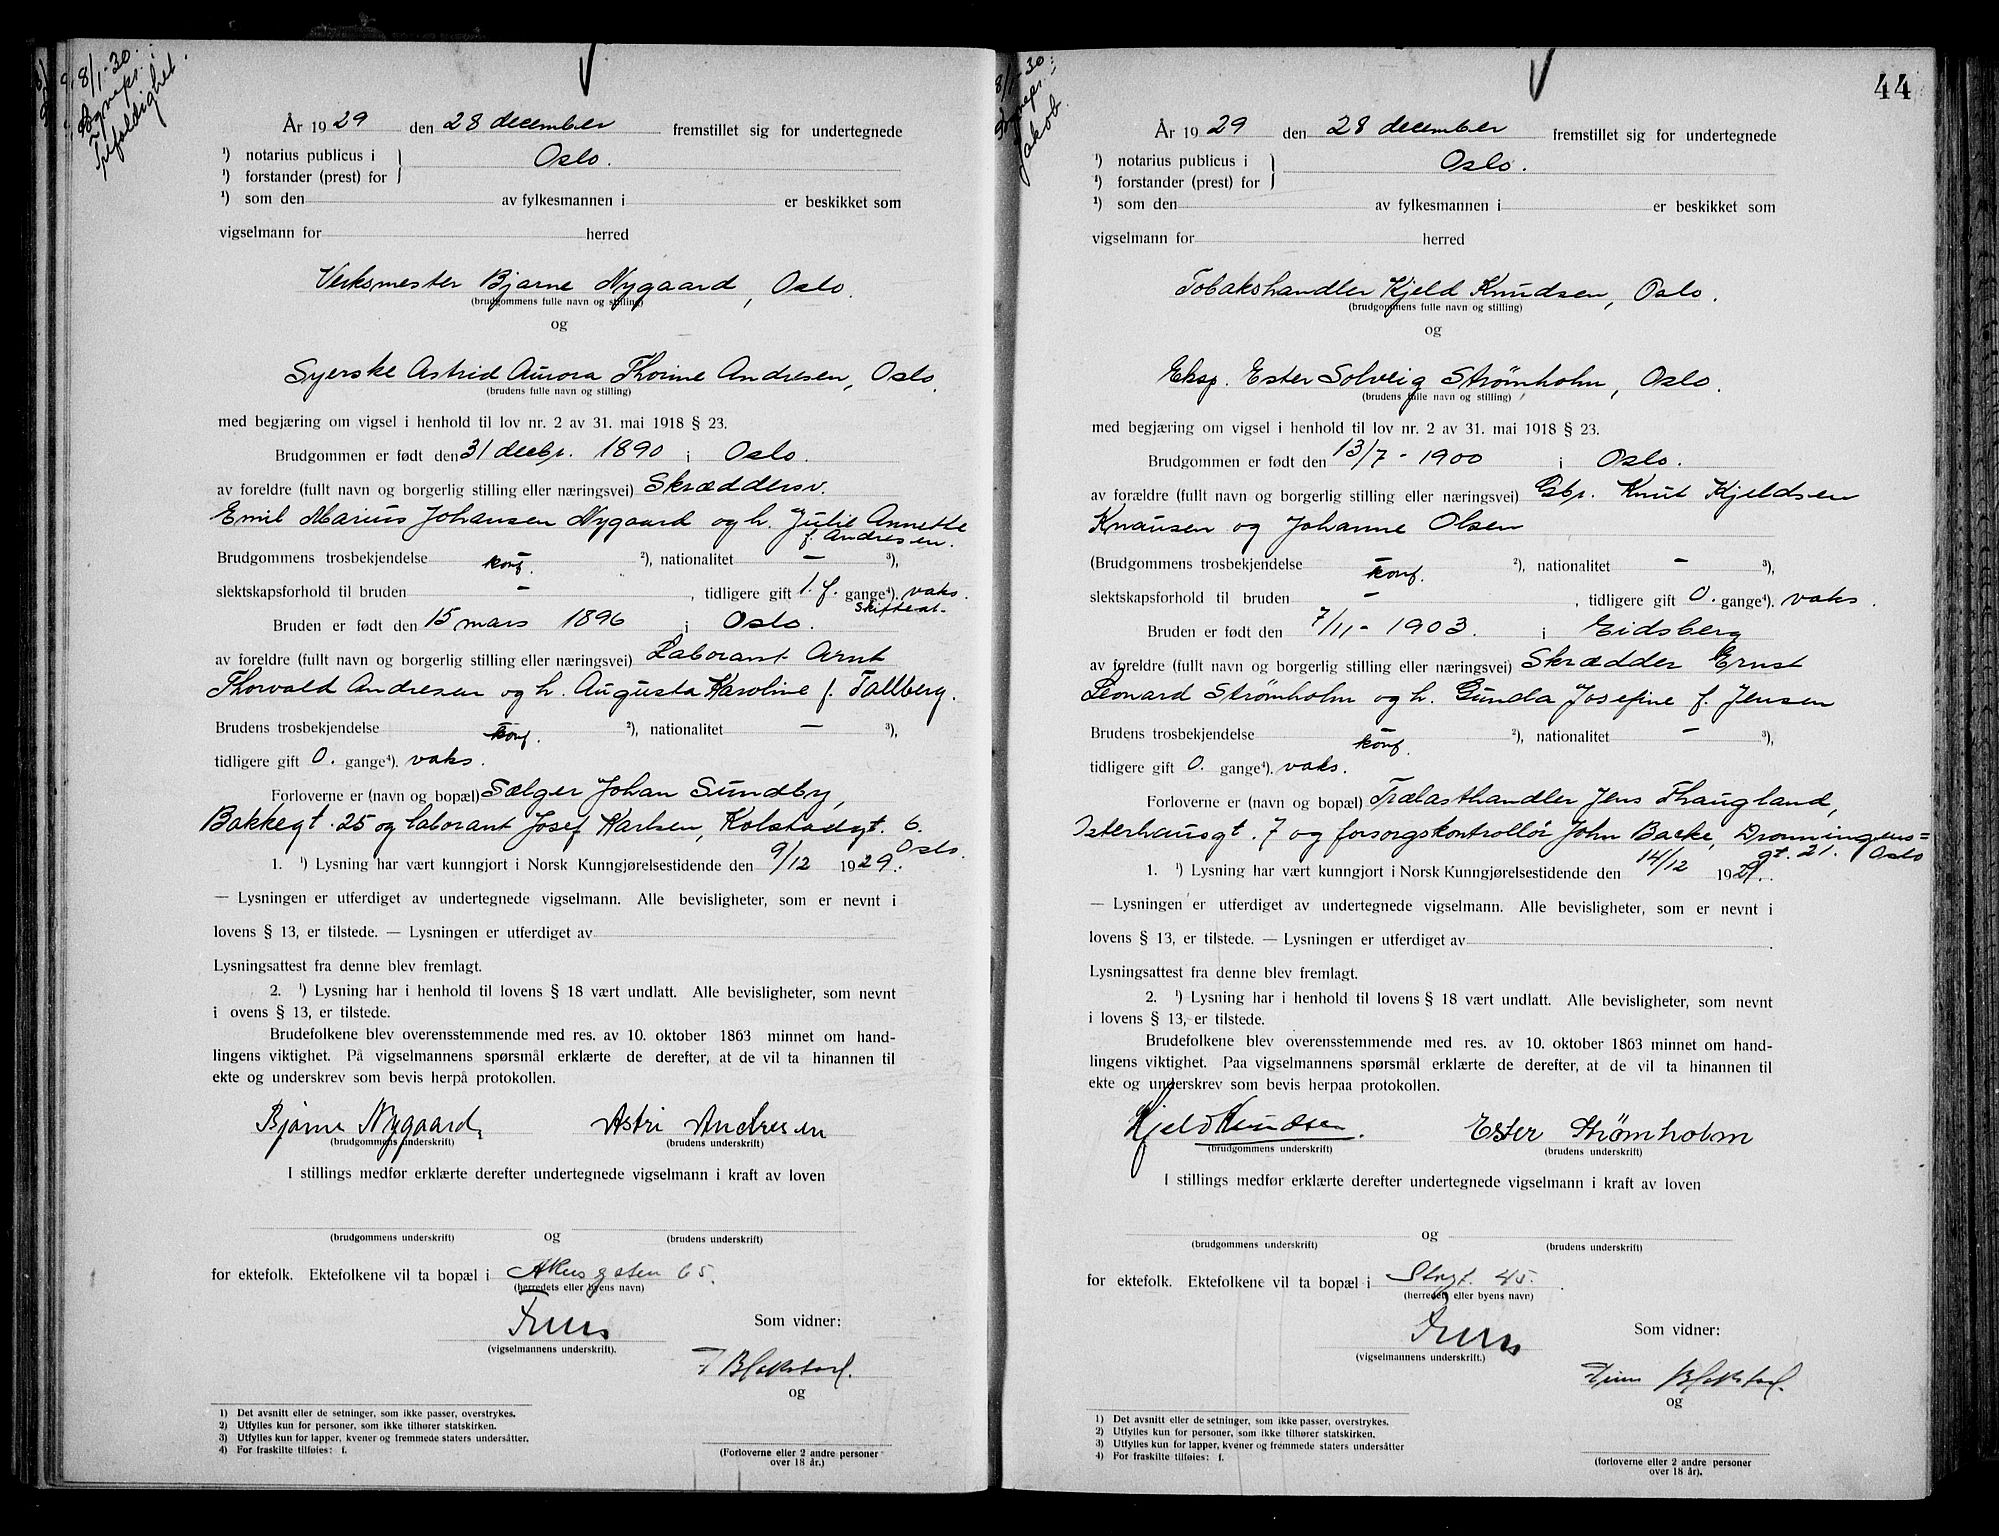 8/1-30.
Trefoldighet.
År 1929 den 28 december fremstillet sig for undertegnede
¹) notarius publicus i
¹) forstander (prest) for } Oslo.
¹) som den av fylkesmannen i er beskikket som
vigselmann for herred
Verksmester Bjarne Nygaard, Oslo.
(brudgommens fulle navn og stilling)
og
Syerske Astrid Aurora Thorine Andresen, Oslo.
(brudens fulle navn og stilling)
med begjæring om vigsel i henhold til lov nr. 2 av 31. mai 1918 § 23.
Brudgommen er født den 31 decbr. 1890 i Oslo.
av foreldre (fullt navn og borgerlig stilling eller næringsvei) Skræddersv.
Emil Marius Johansen Nygaard og h. Julie Annette
f. Andresen.
Brudgommens trosbekjendelse konf. ²), nationalitet — ³),
slektskapsforhold til bruden —, tidligere gift 1. f. gange⁴). vaks.
skifteat.
Bruden er født den 15 mars 1896 i Oslo.
av foreldre (fullt navn og borgerlig stilling eller næringsvei) Laborant Arnt
Thorvald Andresen og h. Augusta Karoline f. Tallberg.
Brudens trosbekjendelse konf. ²), nationalitet — ³),
tidligere gift 0. gange⁴). vaks.
Forloverne er (navn og bopæl) Sælger Johan Sundby,
Bakkegt. 25 og laborant Josef Karlsen, Kolstadgt. 6.
Oslo.
1. ¹) Lysning har vært kunngjort i Norsk Kunngjørelsestidende den 9/12 1929.
— Lysningen er utferdiget av undertegnede vigselmann. Alle bevisligheter, som er nevnt i
lovens § 13, er tilstede. — Lysningen er utferdiget av
Lysningsattest fra denne blev fremlagt.
2. ¹) Lysning har i henhold til lovens § 18 vært undlatt. Alle bevisligheter, som nevnt
i ovens § 13, er tilstede.
Brudefolkene blev overensstemmende med res. av 10. oktober 1863 minnet om hand-
lingens viktighet. På vigselmannens spørsmål erklærte de derefter, at de vil ta hinannen til
ekte og underskrev som bevis herpå protokollen.
Bjarne Nygaard Astri Andresen
(brudgommens underskrift) (brudens underskrift)
I stillings medfør erklærte derefter undertegnede vigselmann i kraft av loven
og
(brudgommens underskrift) (brudens underskrift)
for ektefolk. Ektefolkene vil ta bopæl i Akersgaten 65.
(herredets eller byens navn)
Som vidner:
(vigselmannens underskrift).
Blakstad.
og
1) Det avsnitt eller de setninger, som ikke passer, overstrykes.
2) Utfylles kun for personer, som ikke tilhører statskirken.
3) Utfylles kun for lapper, kvener og fremmede staters undersåtter.
4) For fraskilte tilføies: f.
(Forloverne eller 2 andre personer
over 18 år.)
8/1-30.
Jakob.
44
År 1929 den 28 december fremstillet sig for undertegnede
¹) notarius publicus i
¹) forstander (prest) for } Oslo.
¹) som den av fylkesmannen i er beskikket som
vigselmann for herred
Tobakshandler Kjeld Knudsen, Oslo.
(brudgommens fulle navn og stilling)
og
Eksp. Ester Solveig Strømholm, Oslo.
(brudens fulle navn og stilling)
med begjæring om vigsel i henhold til lov nr. 2 av 31. mai 1918 § 23.
Brudgommen er født den 13/7 - 1900 i Oslo.
av forældre (fullt navn og borgerlig stilling eller næringsvei) Gbr. Knut Kjeldsen
Knausen og Johanne Olsen
(Brudgommens trosbekjendelse konf. ²), nationalitet — ³),
slektskapsforhold til bruden —, tidligere gift 0. gange⁴). vaks.
Bruden er født den 7/11 - 1903. i Eidsberg
av foreldre (fullt navn og borgerlig stilling eller næringsvei) Skrædder Ernst
Leonard Strømholm og h. Gunda Josefine f. Jensen
Brudens trosbekjendelse konf. ²), nationalitet — ³),
tidligere gift 0. gange⁴). vaks.
Forloverne er (navn og bopæl) Trælasthandler Jens Thaugland,
Osterhausgt. 7 og forsorgskontrollør John Backe, Dronningens=
gt. 21. Oslo
1. ¹) Lysning har vært kunngjort i Norsk Kunngjørelsestidende den 14/12 1929.
— Lysningen er utferdiget av undertegnede vigselmann. Alle bevisligheter, som er nevnt i
lovens § 13, er tilstede. — Lysningen er utferdiget av
Lysningsattest fra denne blev fremlagt.
2. ¹) Lysning har i henhold til lovens § 18 vært undlatt. Alle bevisligheter, som nevnt
i lovens § 13, er tilstede.
Brudefolkene blev overensstemmende med res. av 10. oktober 1863 minnet om hand-
lingens viktighet. Paa vigselmannens spørsmål erklærte de derefter, at de vil ta hinannen til
ekte og underskrev som bevis herpaa protokollen.
Kjeld Knudsen. Ester Strømholm
(brudgommens underskrift) (brudens underskrift)
I stillings medfør erklærte derefter undertegnede vigselmann i kraft av loven
og
(brudgommens underskrift) (brudens underskrift)
for ektefolk. Ektefolkene vil ta bopæl i Storgt. 45.
(herredets eller byens navn)
Som vidner:
(vigselmannens underskrift.)
Blakstad.
og
1) Det avsnitt eller de setninger, som ikke passer, overstrykes.
2) Utfylles kun for personer, som ikke tilhører statskirken.
3) Utfylles kun for lapper, kvener og fremmede staters undersåtter
4) For fraskilte tilføies: f.
(forloverne eller 2 andre personer
over 18 år).